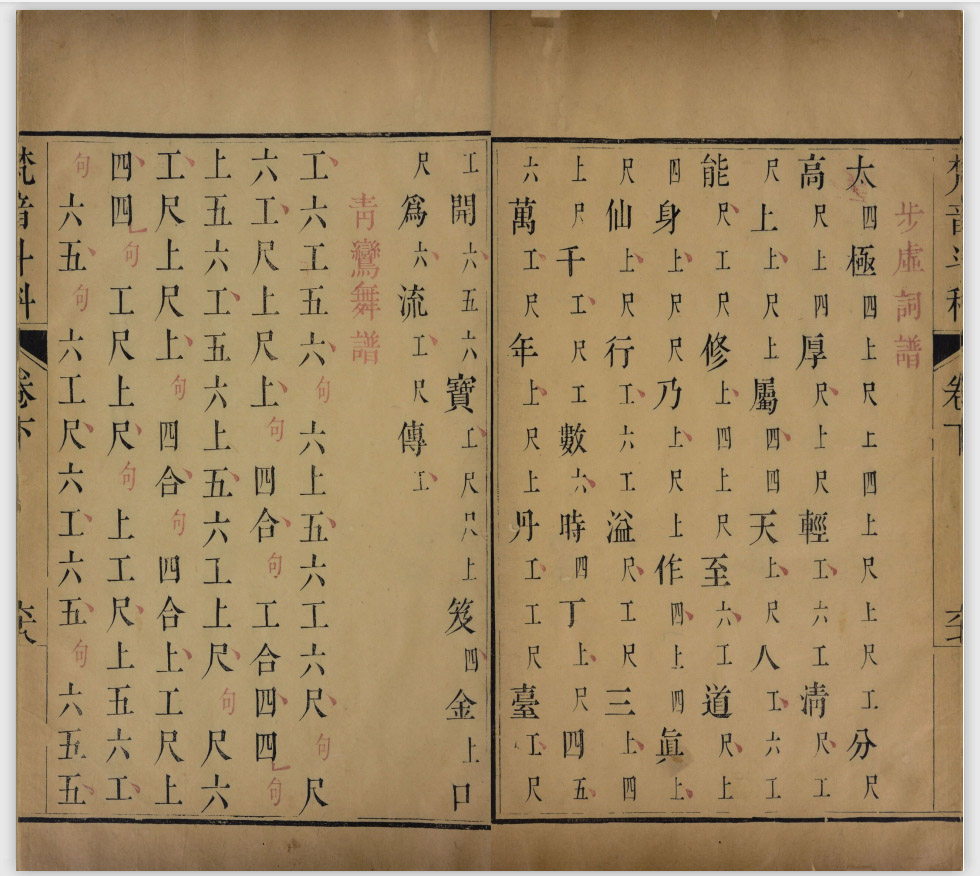 梵音斗科 卷下
步虛詞譜
太四極四上尺上四上尺上尺工分尺
高尺上四厚尺上尺輕工六工淸尺工
尺上上尺上屬四四天上尺人工六工
能尺工尺修上四上尺至六工道尺上
四身上尺尺乃上尺上作四上四眞上
尺仙上尺行工六工溢尺工尺三上四
上尺千工尺工數六時四丁上尺四五
六萬工尺年上尺上丹工工尺臺工尺
工開六五六寶工尺尺上笈四金上口
尺爲六流工尺傳工
靑鸞舞譜
工六工五六句六上五六工六尺句尺
六工尺上尺上句四合句工合四四句
上五六工五六上五六工上尺句尺六
工尺上尺上句四合句四合上工尺上
四四句工尺上尺句上工尺上五六工
句六五句六工尺六工六五句六五五
梵音斗科 卷下